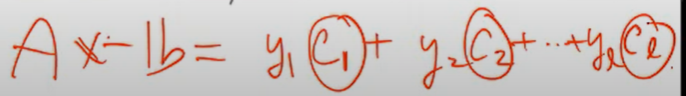 Ax - 𝕓 = y₁ c₁ + y₂ c₂ + ... + yₗ cₗ